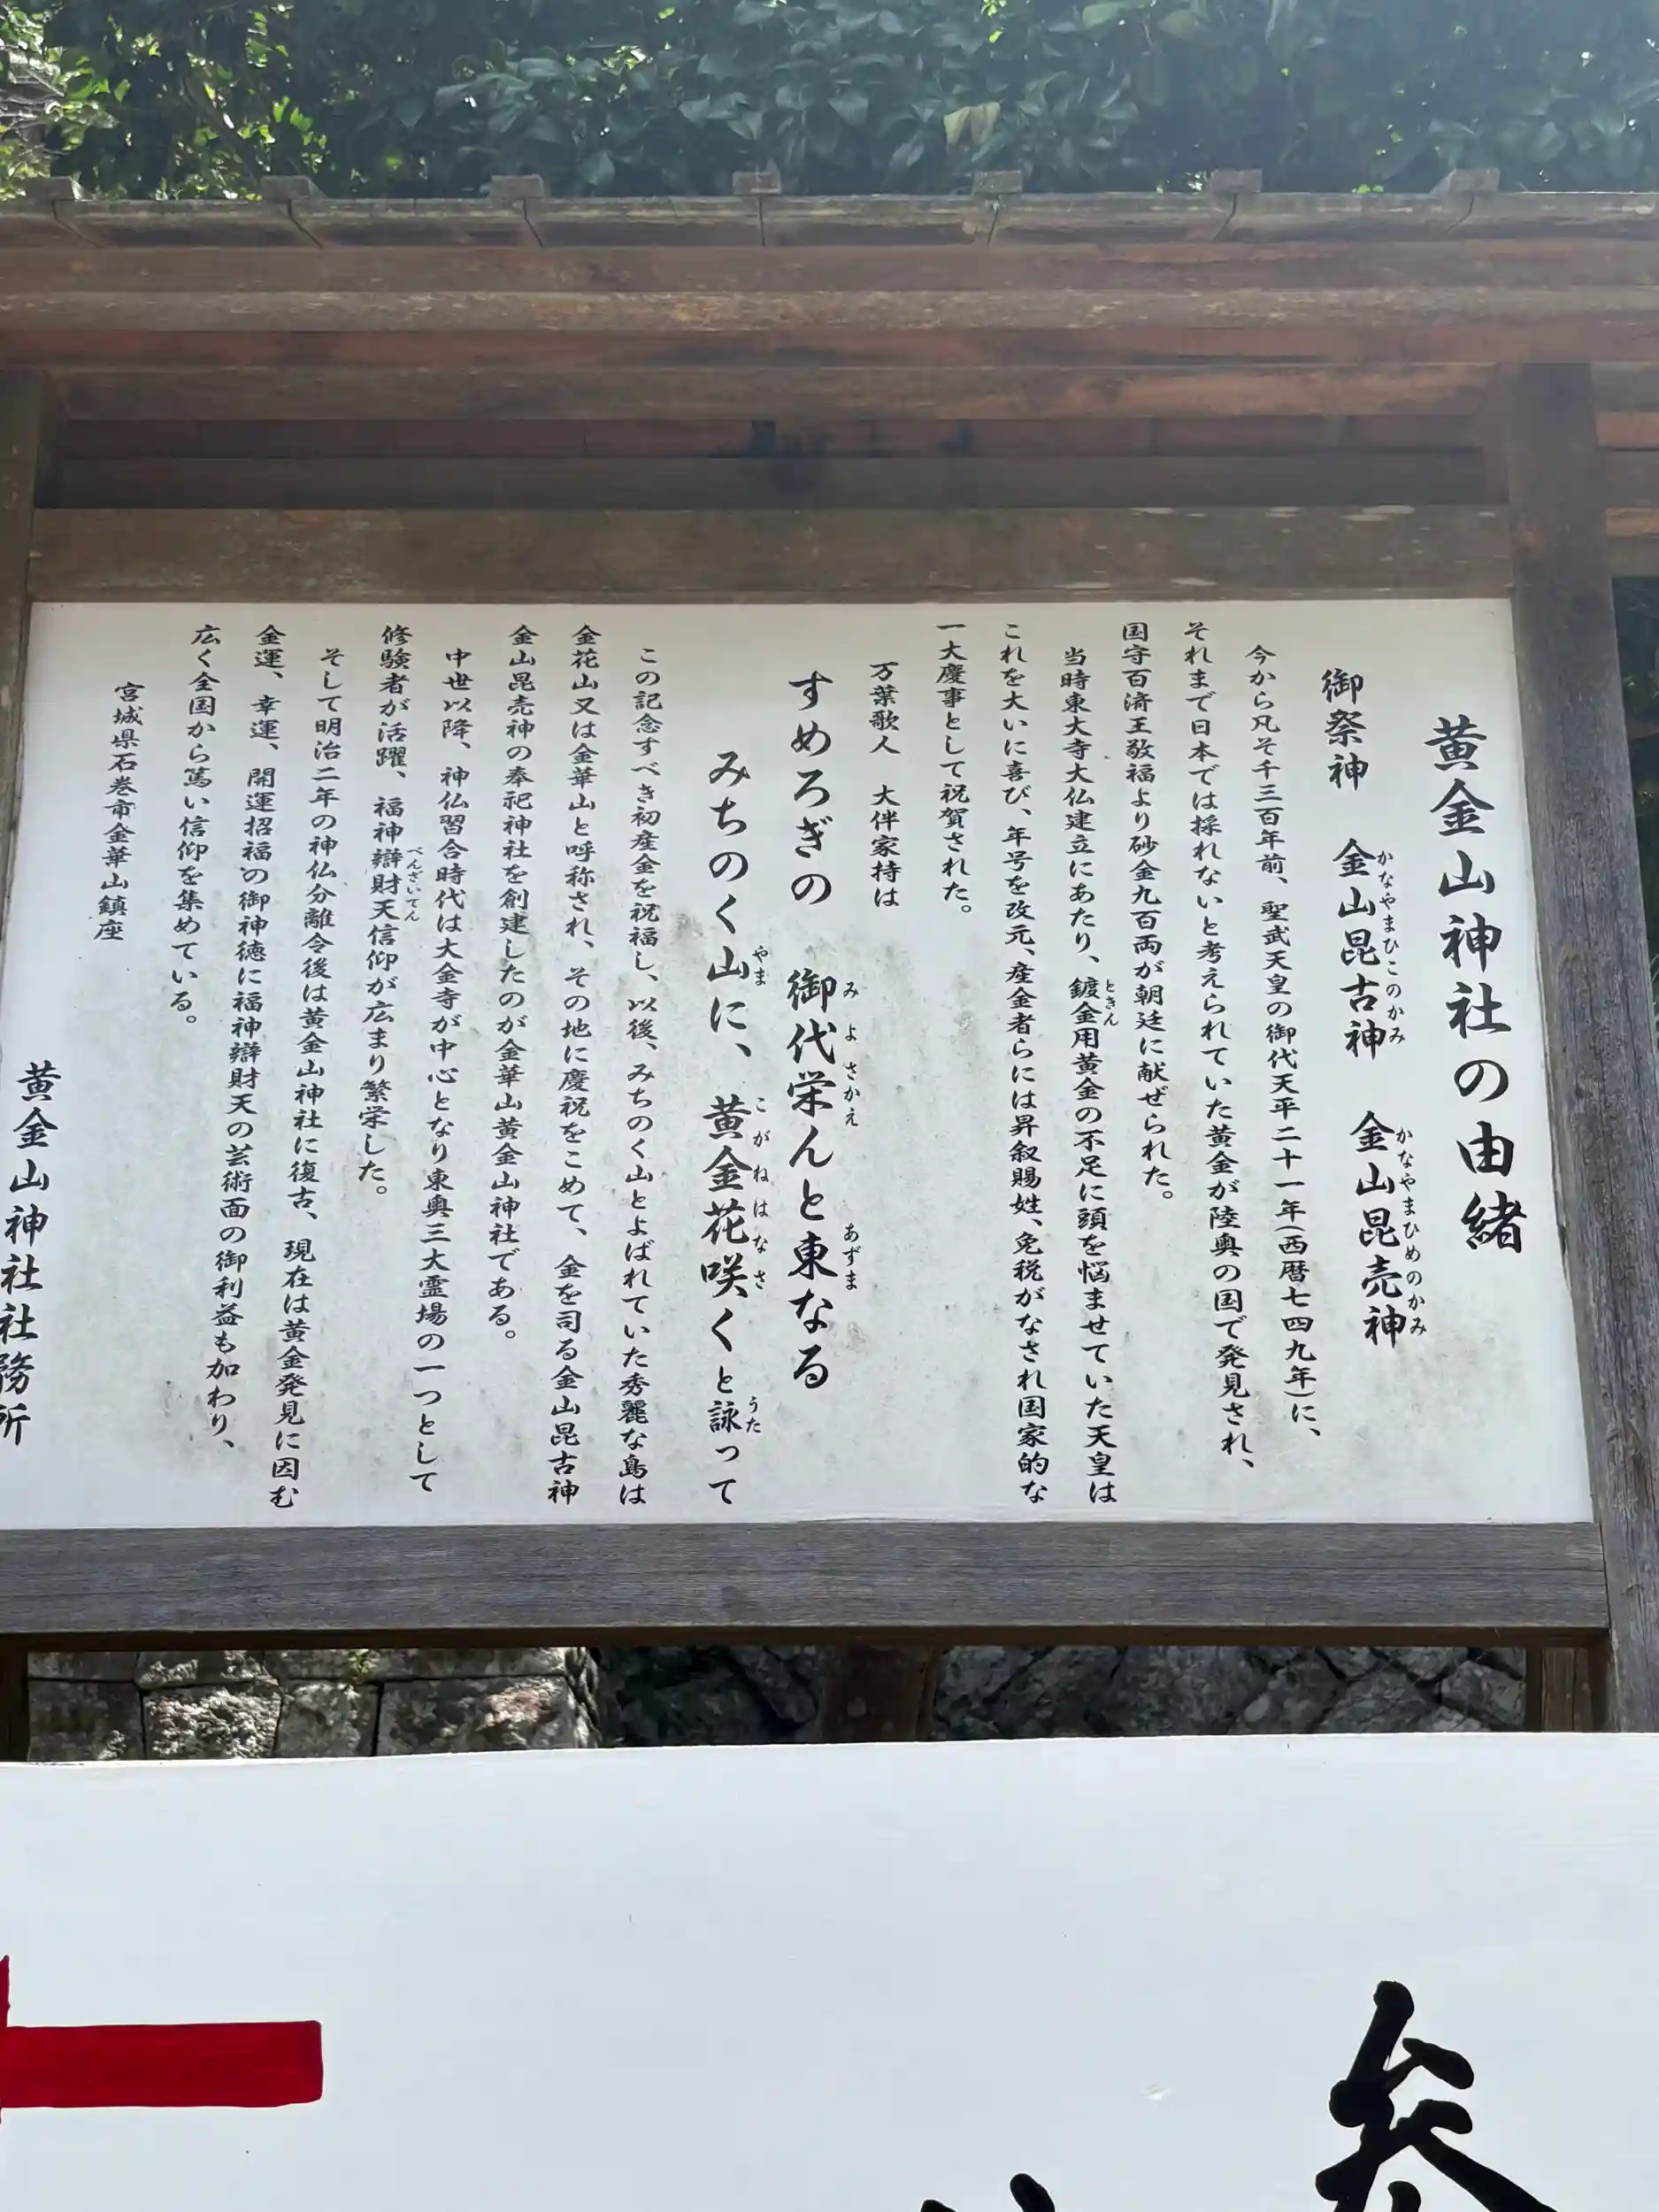 黄金山神社の由緒
御祭神 金山昆古神 金山昆売神
かなやまひこのかみ かなやまひめのかみ
今から凡そ千三百年前、聖武天皇の御代天平二十一年(西暦七四九年)に、
それまで日本では採れないと考えられていた黄金が陸奥の国で発見され、
国守百済王敬福より砂金九百両が朝廷に献ぜられた。
当時東大寺大仏建立にあたり、鍍金用黄金の不足に頭を悩ませていた天皇は
ときん
これを大いに喜び、年号を改元、産金者らには昇叙賜姓、免税がなされ国家的な
一大慶事として祝賀された。
万葉歌人 大伴家持は
すめろぎの 御代栄んと東なる
みよさかえ あずま
みちのく山に、黄金花咲くと詠って
やま こがねはなさ うた
この記念すべき初産金を祝福し、以後、みちのく山とよばれていた秀麗な島は
金花山又は金華山と呼称され、その地に慶祝をこめて、金を司る金山昆古神
金山昆売神の奉祀神社を創建したのが金華山黄金山神社である。
中世以降、神仏習合時代は大金寺が中心となり東奥三大霊場の一つとして
修験者が活躍、福神辯財天信仰が広まり繁栄した。
べんざいてん
そして明治二年の神仏分離令後は黄金山神社に復古、現在は黄金発見に因む
金運、幸運、開運招福の御神徳に福神辯財天の芸術面の御利益も加わり、
広く全国から篤い信仰を集めている。
宮城県石巻市金華山鎮座
黄金山神社社務所
参